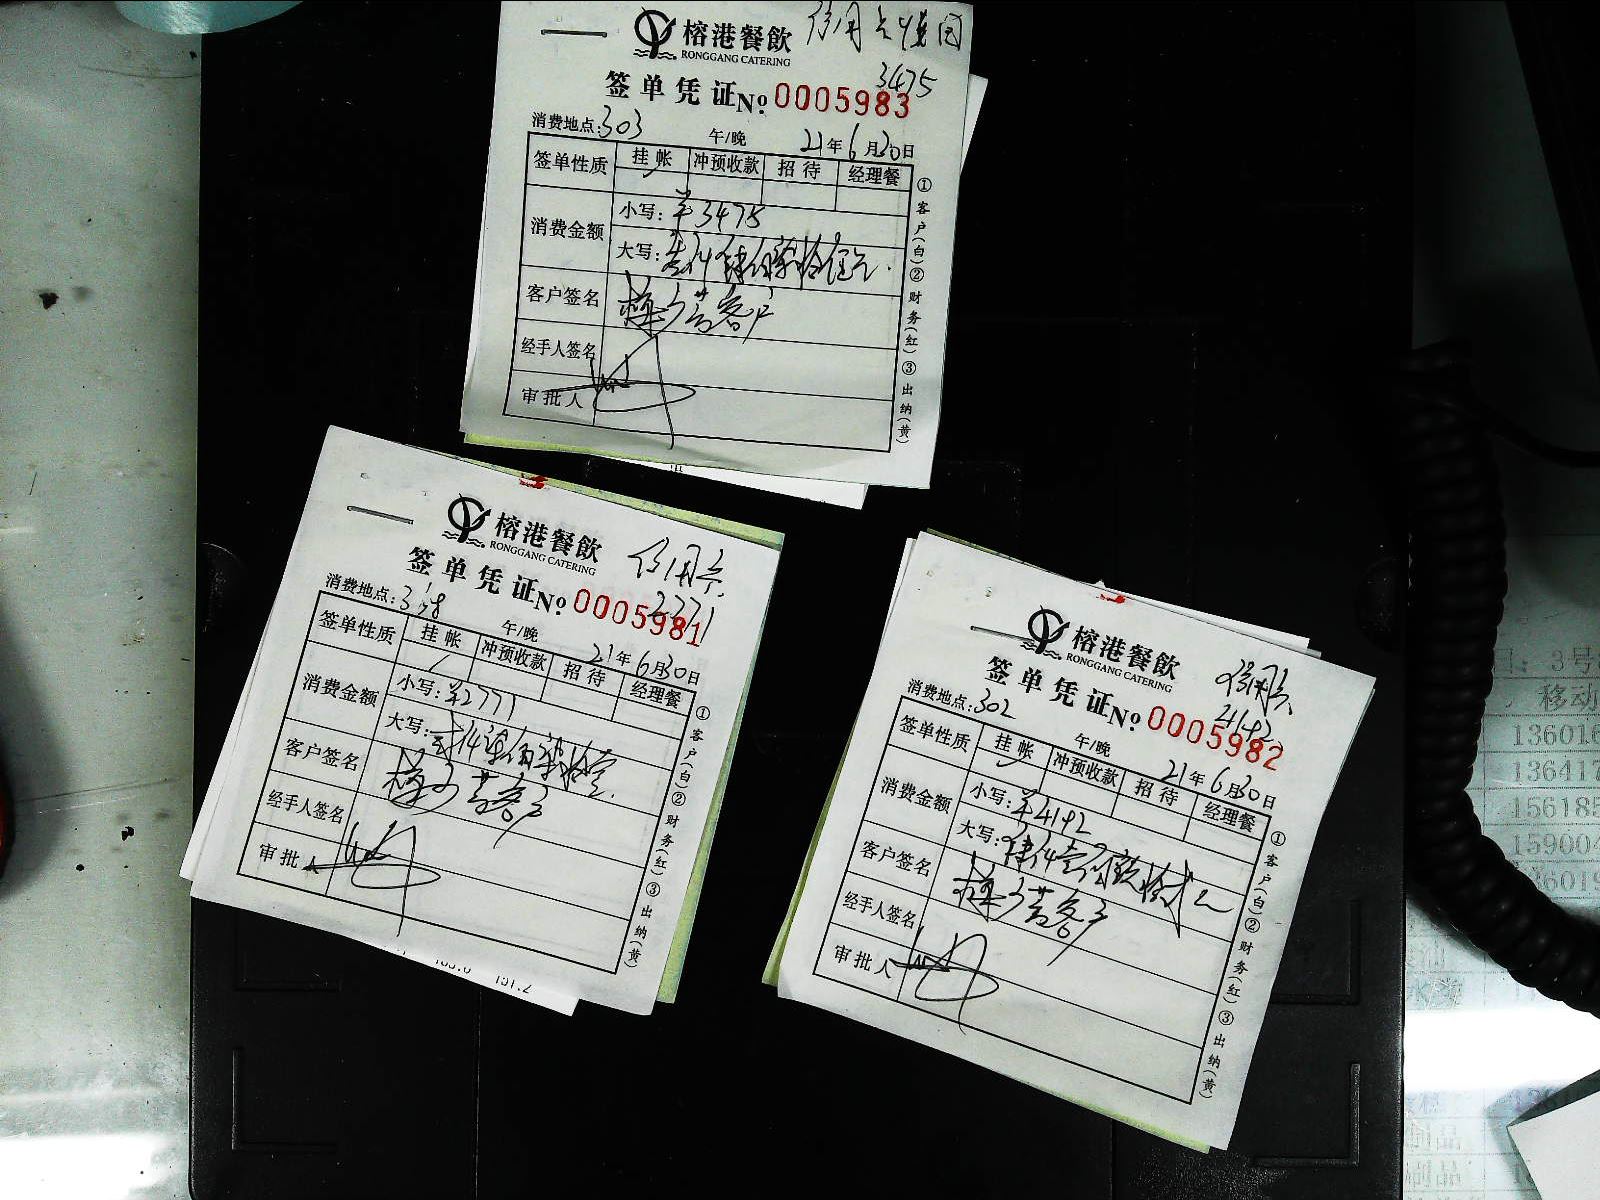 榕港餐飲
RONGGANG CATERING
信用卡
3475
签单凭证 No. 0005983
消费地点: 303 午/晚 21年6月30日
签单性质 挂帐 冲预收款 招待 经理餐
消费金额 小写: ¥3475
大写: 叁仟肆佰柒拾伍元
客户签名 梅子营客户
经手人签名
审批人
①客户(白)②财务(红)③出纳(黄)
榕港餐飲
RONGGANG CATERING
信用卡
签单凭证 No. 0005981
消费地点: 午/晚 21年6月30日
签单性质 挂帐 冲预收款 招待 经理餐
消费金额 小写:
大写:
客户签名 客户
经手人签名
审批人
①客户(白)②财务(红)③出纳(黄)
榕港餐飲
RONGGANG CATERING
信用卡
4192
签单凭证 No. 0005982
消费地点: 302 午/晚 21年6月30日
签单性质 挂帐 冲预收款 招待 经理餐
消费金额 小写: ¥4192
大写: 肆仟壹佰玖拾贰元
客户签名 客户
经手人签名
审批人
①客户(白)②财务(红)③出纳(黄)
3号
移动
13601
13641
15618
15900